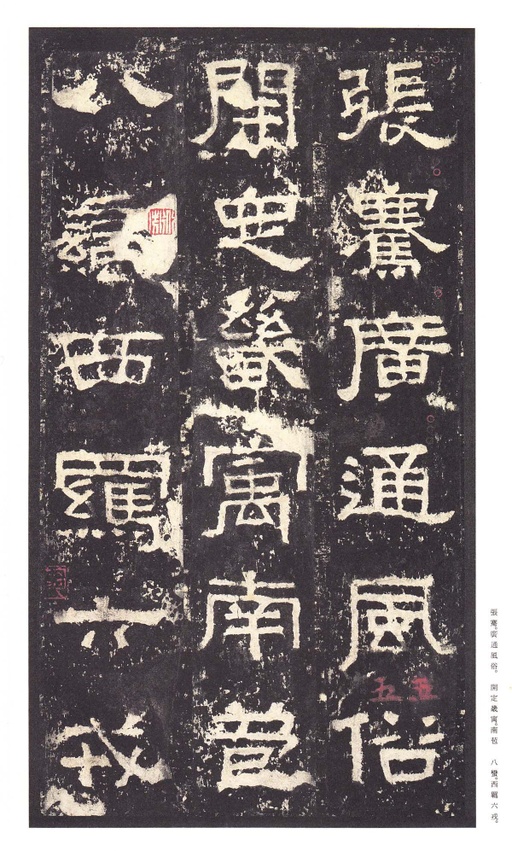 張騫廣通風俗
開定畿寓南苞
八蠻西羈六戎
張騫，廣通風俗。開定畿寓，南苞八蠻，西羈六戎，